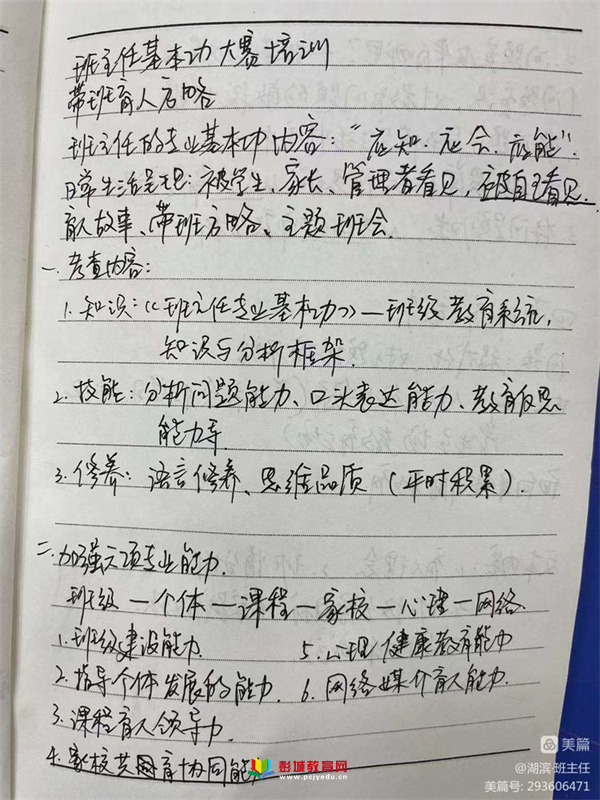 班主任基本功大赛培训
带班育人方略
班主任的专业基本功内容:“应知、应会、应能”.
日常生活呈现:被学生、家长、管理者看见,被自己看见
育人故事、带班方略、主题班会.
一.考查内容:
1.知识:《班主任专业基本功》—班级教育系统,
知识与分析框架.
2.技能:分析问题能力、口头表达能力、教育反思
能力等.
3.修养:语言修养、思维品质(平时积累).
二.加强六项专业能力.
班级—个体—课程—家校—心理—网络
1.班级建设能力. 5.心理健康教育能力
2.指导个体发展的能力. 6.网络媒介育人能力.
3.课程育人领导力.
4.家校共育协同能
彭城教育网
www.pcjyedu.cn
美篇
@湖滨·班主任
美篇号: 293606471